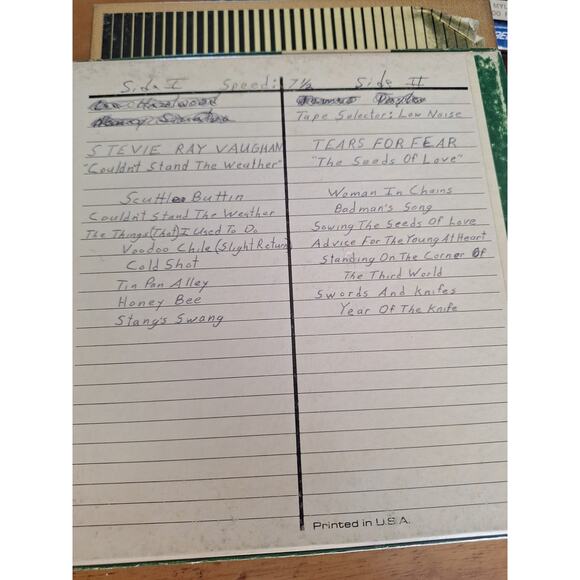 Side I Speed: 7½ Side II
Lee Hazelwood
Nancy Sinatra
STEVIE RAY VAUGHAN
"Couldn't Stand The Weather"
Scuttle Buttin
Couldn't Stand The Weather
The Things (That) I Used To Do
Voodoo Chile (Slight Return)
Cold Shot
Tin Pan Alley
Honey Bee
Stang's Swang
James Taylor
Tape Selector: Low Noise
TEARS FOR FEAR
"The Seeds Of Love"
Woman In Chains
Badman's Song
Sowing The Seeds Of Love
Advice For The Young At Heart
Standing On The Corner Of
The Third World
Swords And Knifes
Year Of The Knife
Printed in U.S.A.
MYL